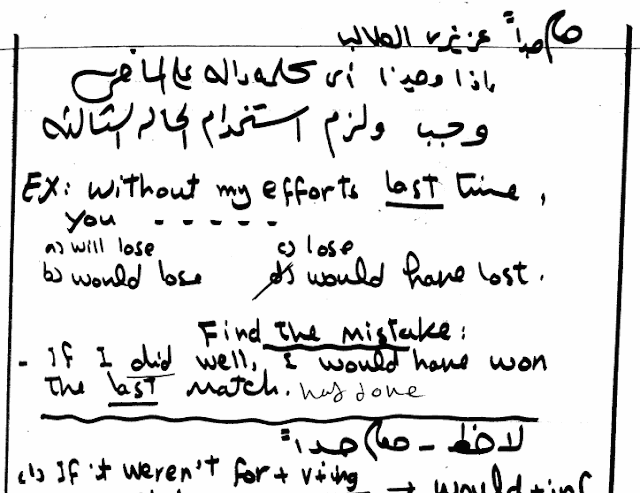 هام جداً عزيزى الطالب
إذا وجدنا أى كلمة دالة على الماضى
وجب ولزم استخدام الحالة الثالثة
EX: without my efforts last time,
you - - - - -
a) will lose c) lose
b) would lose d) would have lost.
Find the mistake:
- If I did well, I would have won
the last match. has done
لاحظ - هام جداً
(1) If it weren't for + v+ing → would + inf